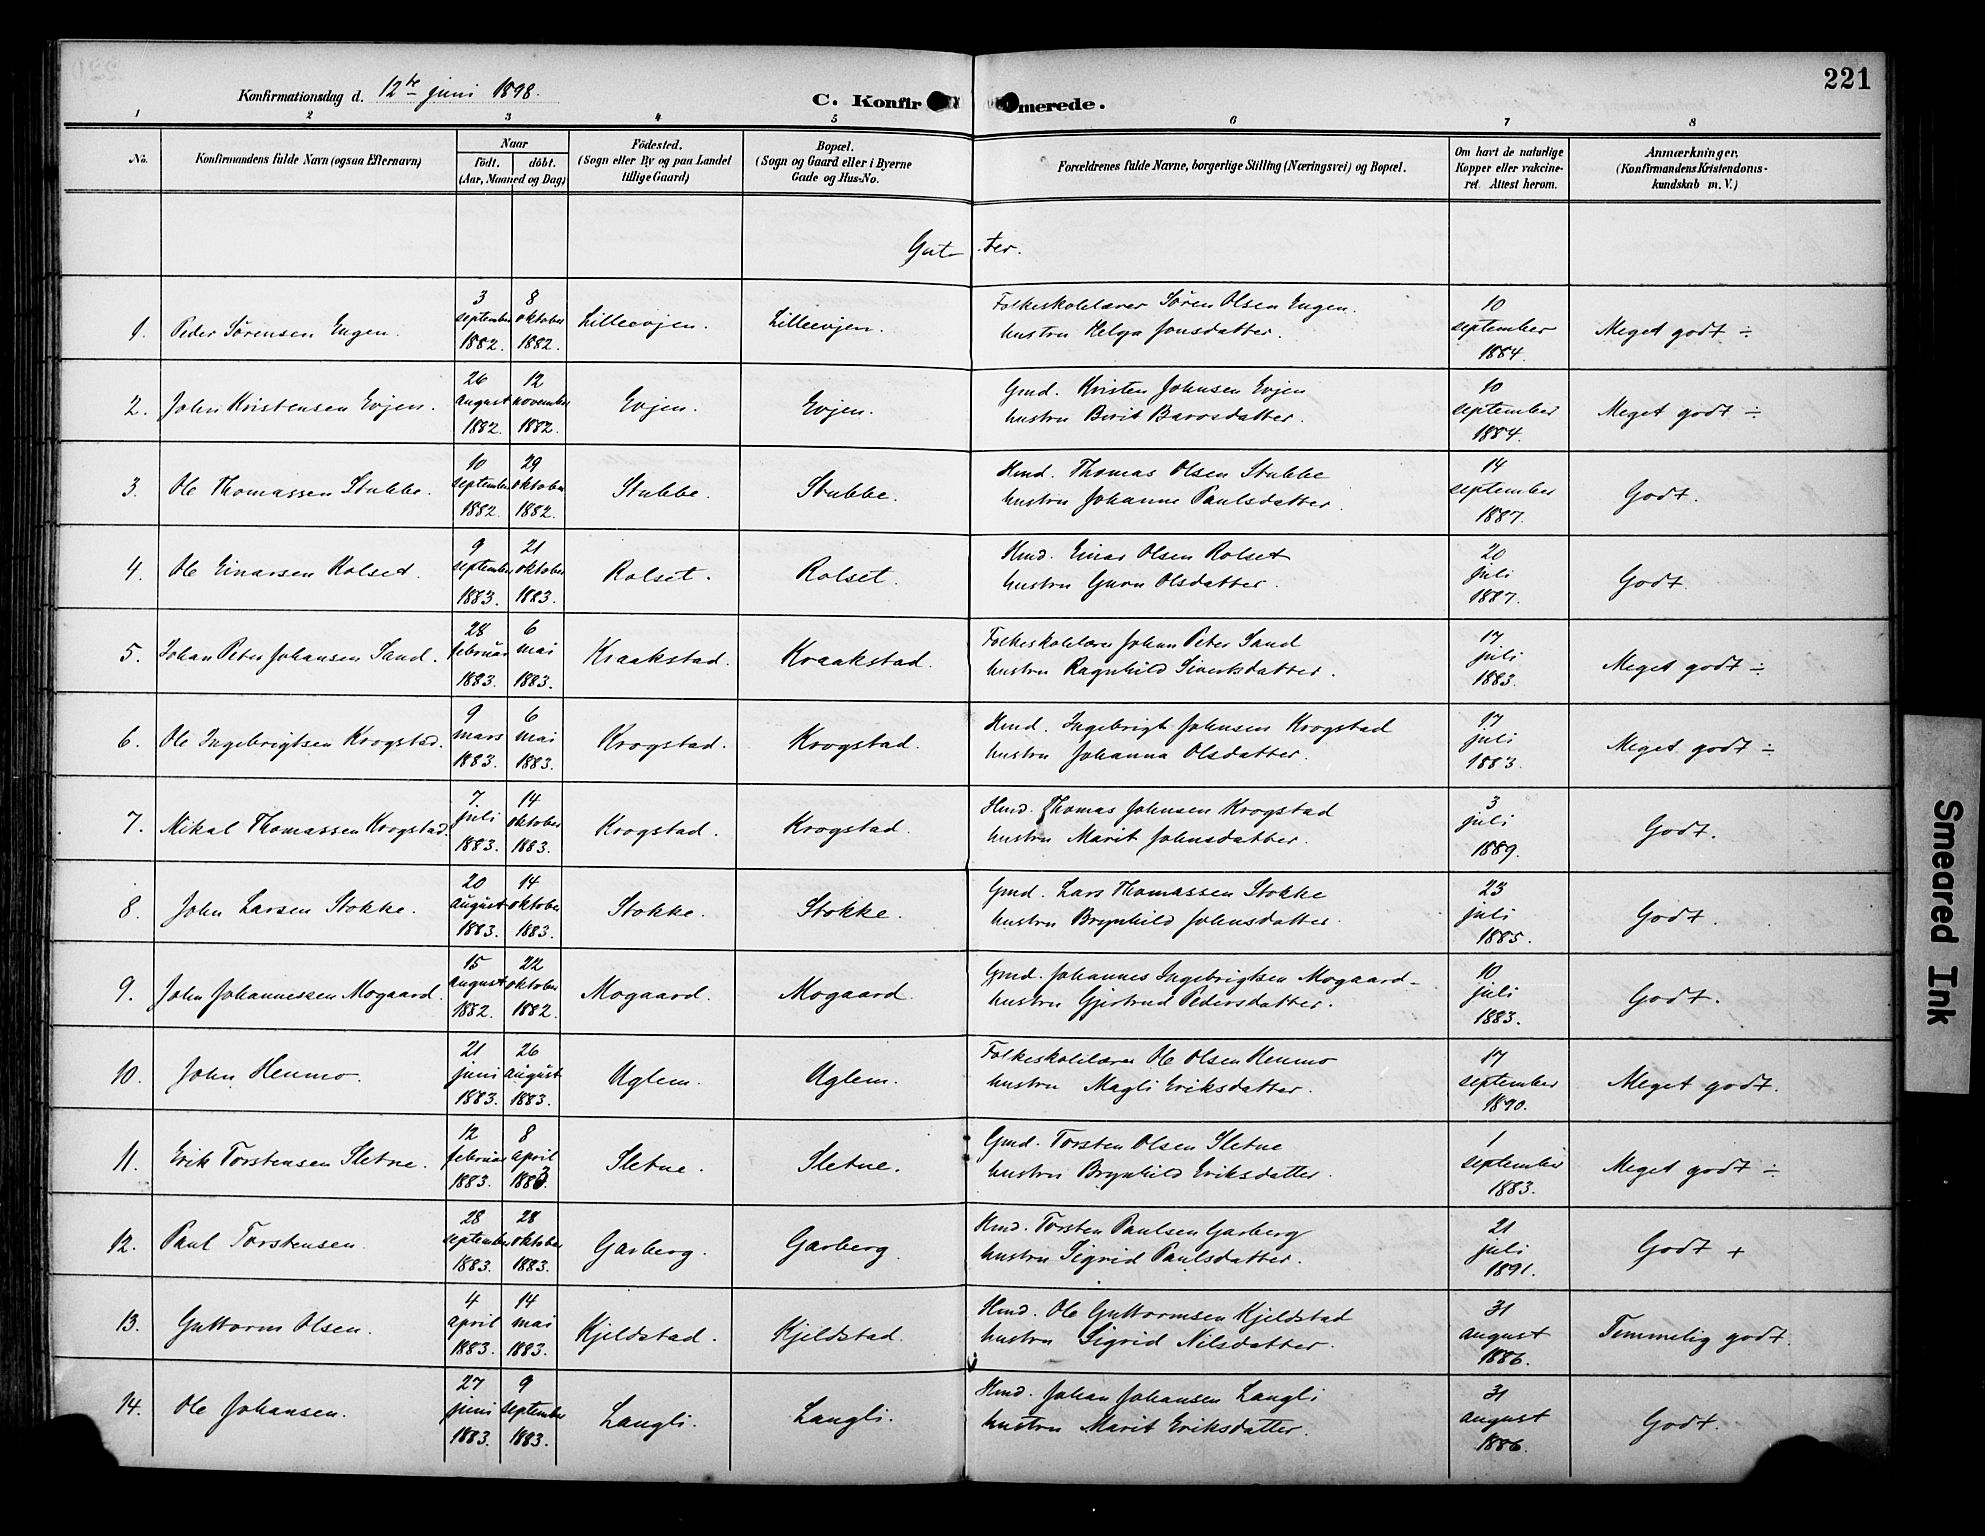 221
Konfirmationsdag d. 12te juni 1898.
C. Konfirmerede.
1 2 3 4 5 6 7 8
No.
Konfirmandens fulde Navn (ogsaa Efternavn)
Naar
födt. döbt.
(Aar, Maaned og Dag)
Födested.
(Sogn eller By og paa Landet
tillige Gaard)
Bopæl.
(Sogn og Gaard eller i Byerne
Gade og Hus-No.
Forældrenes fulde Navne, borgerlige Stilling (Næringsvei) og Bopæl.
Om havt de naturlige
Kopper eller vakcine-
ret. Attest herom.
Anmærkninger.
(Konfirmandens Kristendoms-
kundskab m. V.)
Gut-ter.
1. Peder Sørensen Engen. 3 september 1882. 8 oktober 1882. Lilleevjen. Lilleevjen. Folkeskolelærer Søren Olsen Engen. 10 september 1884. Meget godt ÷
hustru Helga Jonsdatter.
2. John Kristensen Evjen. 26 august 1882. 12 november 1882. Evjen. Evjen. Gmd. Kristen Johnsen Evjen 10 september 1884. Meget godt ÷
hustru Berit Barosdatter.
3. Ole Thomassen Stubbe. 10 september 1882. 29 oktober 1882. Stubbe. Stubbe. Hmd. Thomas Olsen Stubbe 14 september 1887. Godt.
hustru Johanne Paulsdatter.
4. Ole Einarsen Rolset. 9 september 1883. 21 oktober 1883. Rolset. Rolset. Hmd. Einar Olsen Rolset 20 juli 1887. Godt.
hustru Guru Olsdatter.
5. Johan Peter Johansen Sand. 28 februar 1883. 6 mai 1883. Kraakstad. Kraakstad. Folkeskolelærer Johan Peter Sand 17 juli 1883. Meget godt ÷
hustru Ragnhild Sivertsdatter.
6. Ole Ingebrigtsen Krogstad. 9 mars 1883. 6 mai 1883. Krogstad. Krogstad. Hmd. Ingebrigt Johnsen Krogstad 17 juli 1883. Meget godt ÷
hustru Johanna Olsdatter.
7. Mikal Thomassen Krogstad. 7. juli 1883. 14 oktober 1883. Krogstad. Krogstad. Hmd. Thomas Johnsen Krogstad 3 juli 1889. Godt.
hustru Marit Johnsdatter.
8. John Larsen Stokke. 20 august 1883. 14 oktober 1883. Stokke. Stokke. Gmd. Lars Thomassen Stokke 23 juli 1885. Godt.
hustru Brynhild Johnsdatter
9. John Johannessen Mogaard. 15 august 1882. 22 oktober 1882. Mogaard. Mogaard. Gmd. Johannes Ingebrigtsen Mogaard- 10 juli 1883. Godt.
hustru Gjertrud Pedersdatter.
10. John Henmo. 21 juni 1883. 26 august 1883. Uglem. Uglem. Folkeskolelærer Ole Olsen Henmo 17 september 1890. Meget godt.
hustru Magli Eriksdatter.
11. Erik Torstensen Sletne. 12 februar 1883. 8 april 1883. Sletne. Sletne. Gmd. Torsten Olsen Sletne 1 september 1883. Meget godt ÷
hustru Brynhild Eriksdatter.
12. Paul Torstensen. 28 september 1883. 28 oktober 1883. Garberg. Garberg. Hmd. Torsten Paulsen Garberg 21 juli 1891. Godt +
hustru Sigrid Paulsdatter.
13. Guttorm Olsen. 4 april 1883. 14 mai 1883. Kjeldstad. Kjeldstad. Hmd. Ole Guttormsen Kjeldstad 31 august 1886. Temmelig godt.
hustru Sigrid Nilsdatter.
14. Ole Johansen. 27 juni 1883. 9 september 1883. Langli. Langli. Hmd. Johan Johansen Langli 31 august 1886. Godt.
hustru Marit Eriksdatter.
Smeared Ink